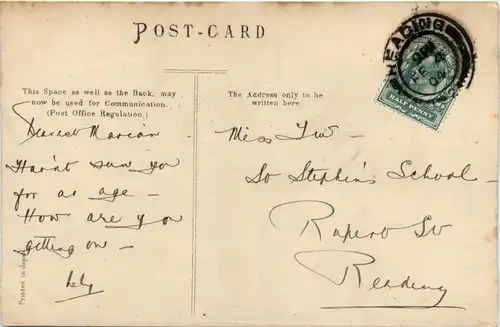 POST-CARD
READING
HALF PENNY
This Space as well as the Back, may
now be used for Communication.
(Post Office Regulation.)
The Address only to be
written here
Dearest Marian
Havn't seen you
for an age —
How are you
getting on —
Miss
St Stephen's School —
Rupert St
Reading
Printed in